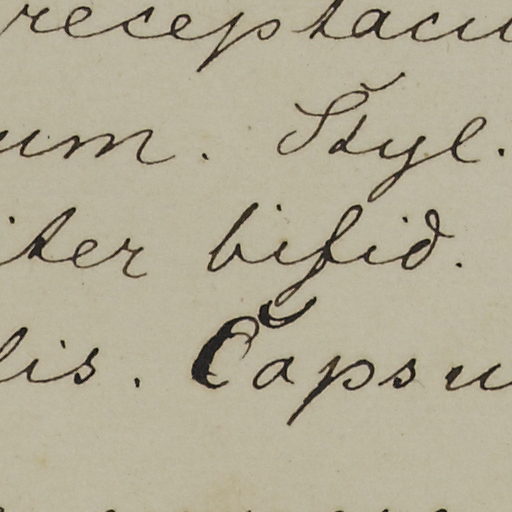 receptacu
um. Styl.
iter bifid.
lis. Capsu